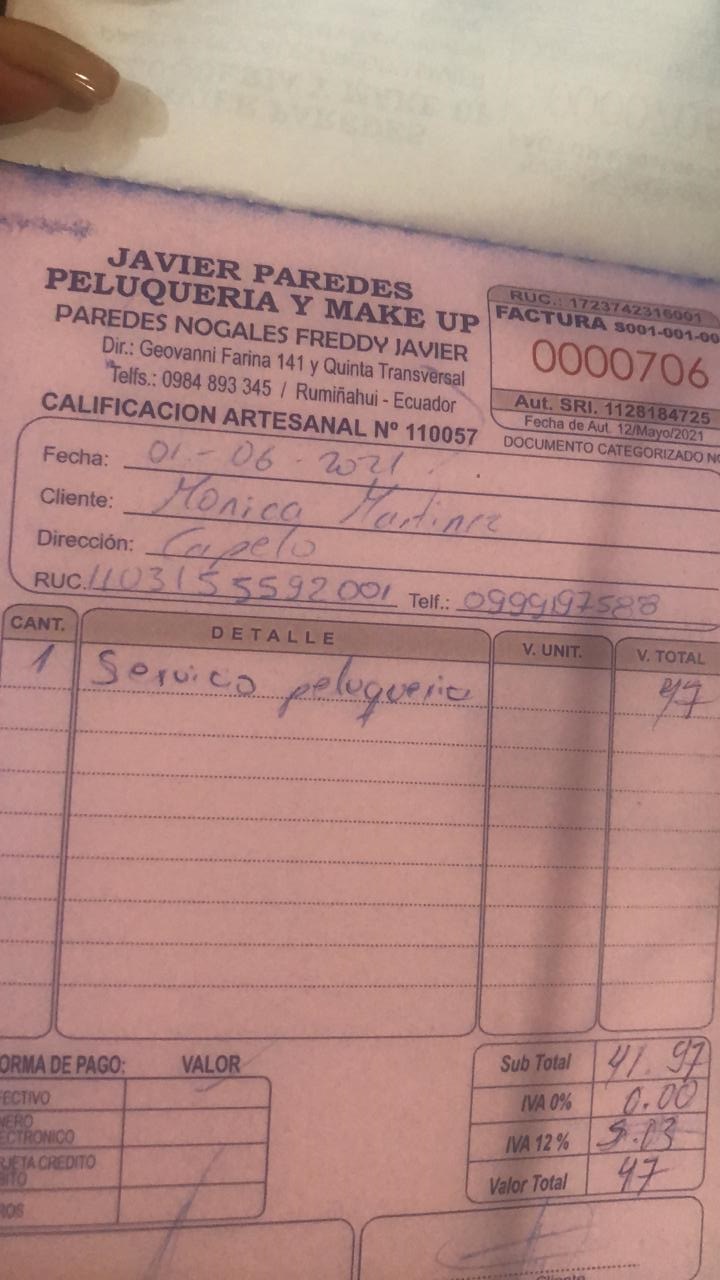 JAVIER PAREDES
PELUQUERIA Y MAKE UP
PAREDES NOGALES FREDDY JAVIER
Dir.: Geovanni Farina 141 y Quinta Transversal
Telfs.: 0984 893 345 / Rumiñahui - Ecuador
CALIFICACION ARTESANAL Nº 110057
RUC.: 1723742316001
FACTURA S001-001-00
0000706
Aut. SRI. 1128184725
Fecha de Aut. 12/Mayo/2021
DOCUMENTO CATEGORIZADO NO
Fecha: 01-06-2021
Cliente: Monica Martinez
Dirección: Capelo
RUC. 1103155592001 Telf.: 0999197588
CANT. DETALLE V. UNIT. V. TOTAL
1 Servico peluqueria 47
ORMA DE PAGO: VALOR
ECTIVO
NERO
ECTRONICO
RJETA CREDITO
BITO
ROS
Sub Total 41.97
IVA 0% 0.00
IVA 12% 5.03
Valor Total 47
Cliente